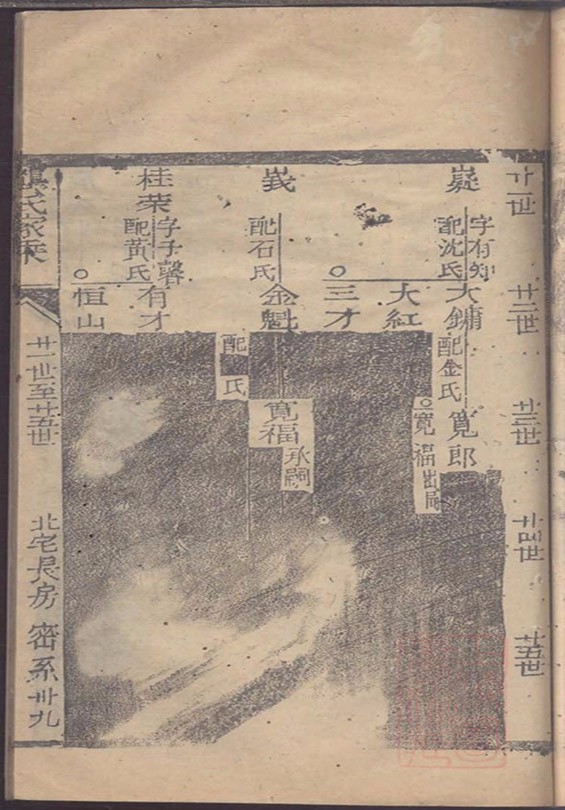 廿一世
廿二世
廿三世
廿四世
廿五世
嶷
字有知
配沈氏
大鏞
配金氏
寬郎
寬福出嗣
大紅
三才
配石氏
金魁
配 氏
寬福
承嗣
桂荣
字子馨
配黄氏
有才
恒山
氏家乘
廿一世至廿五世
北宅長房
密系
卅九